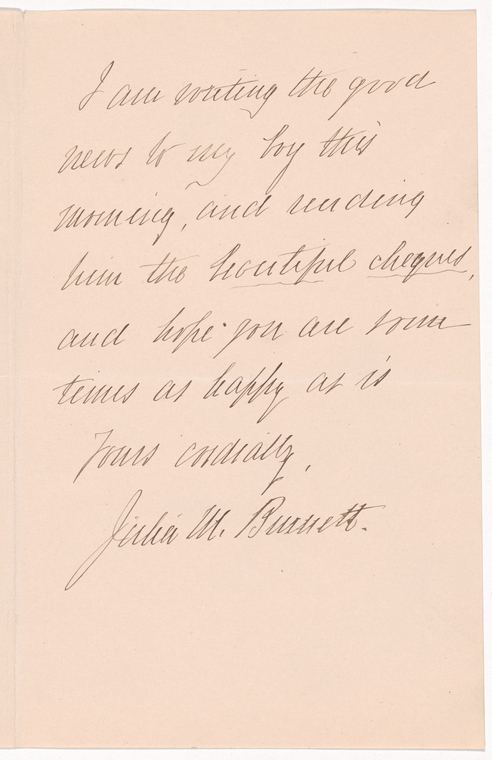 I am writing the good
news to my boy this
morning, and sending
him the beautiful cheques,
and hope you are some
times as happy as is
Yours cordially,
Julia M. Burnett.